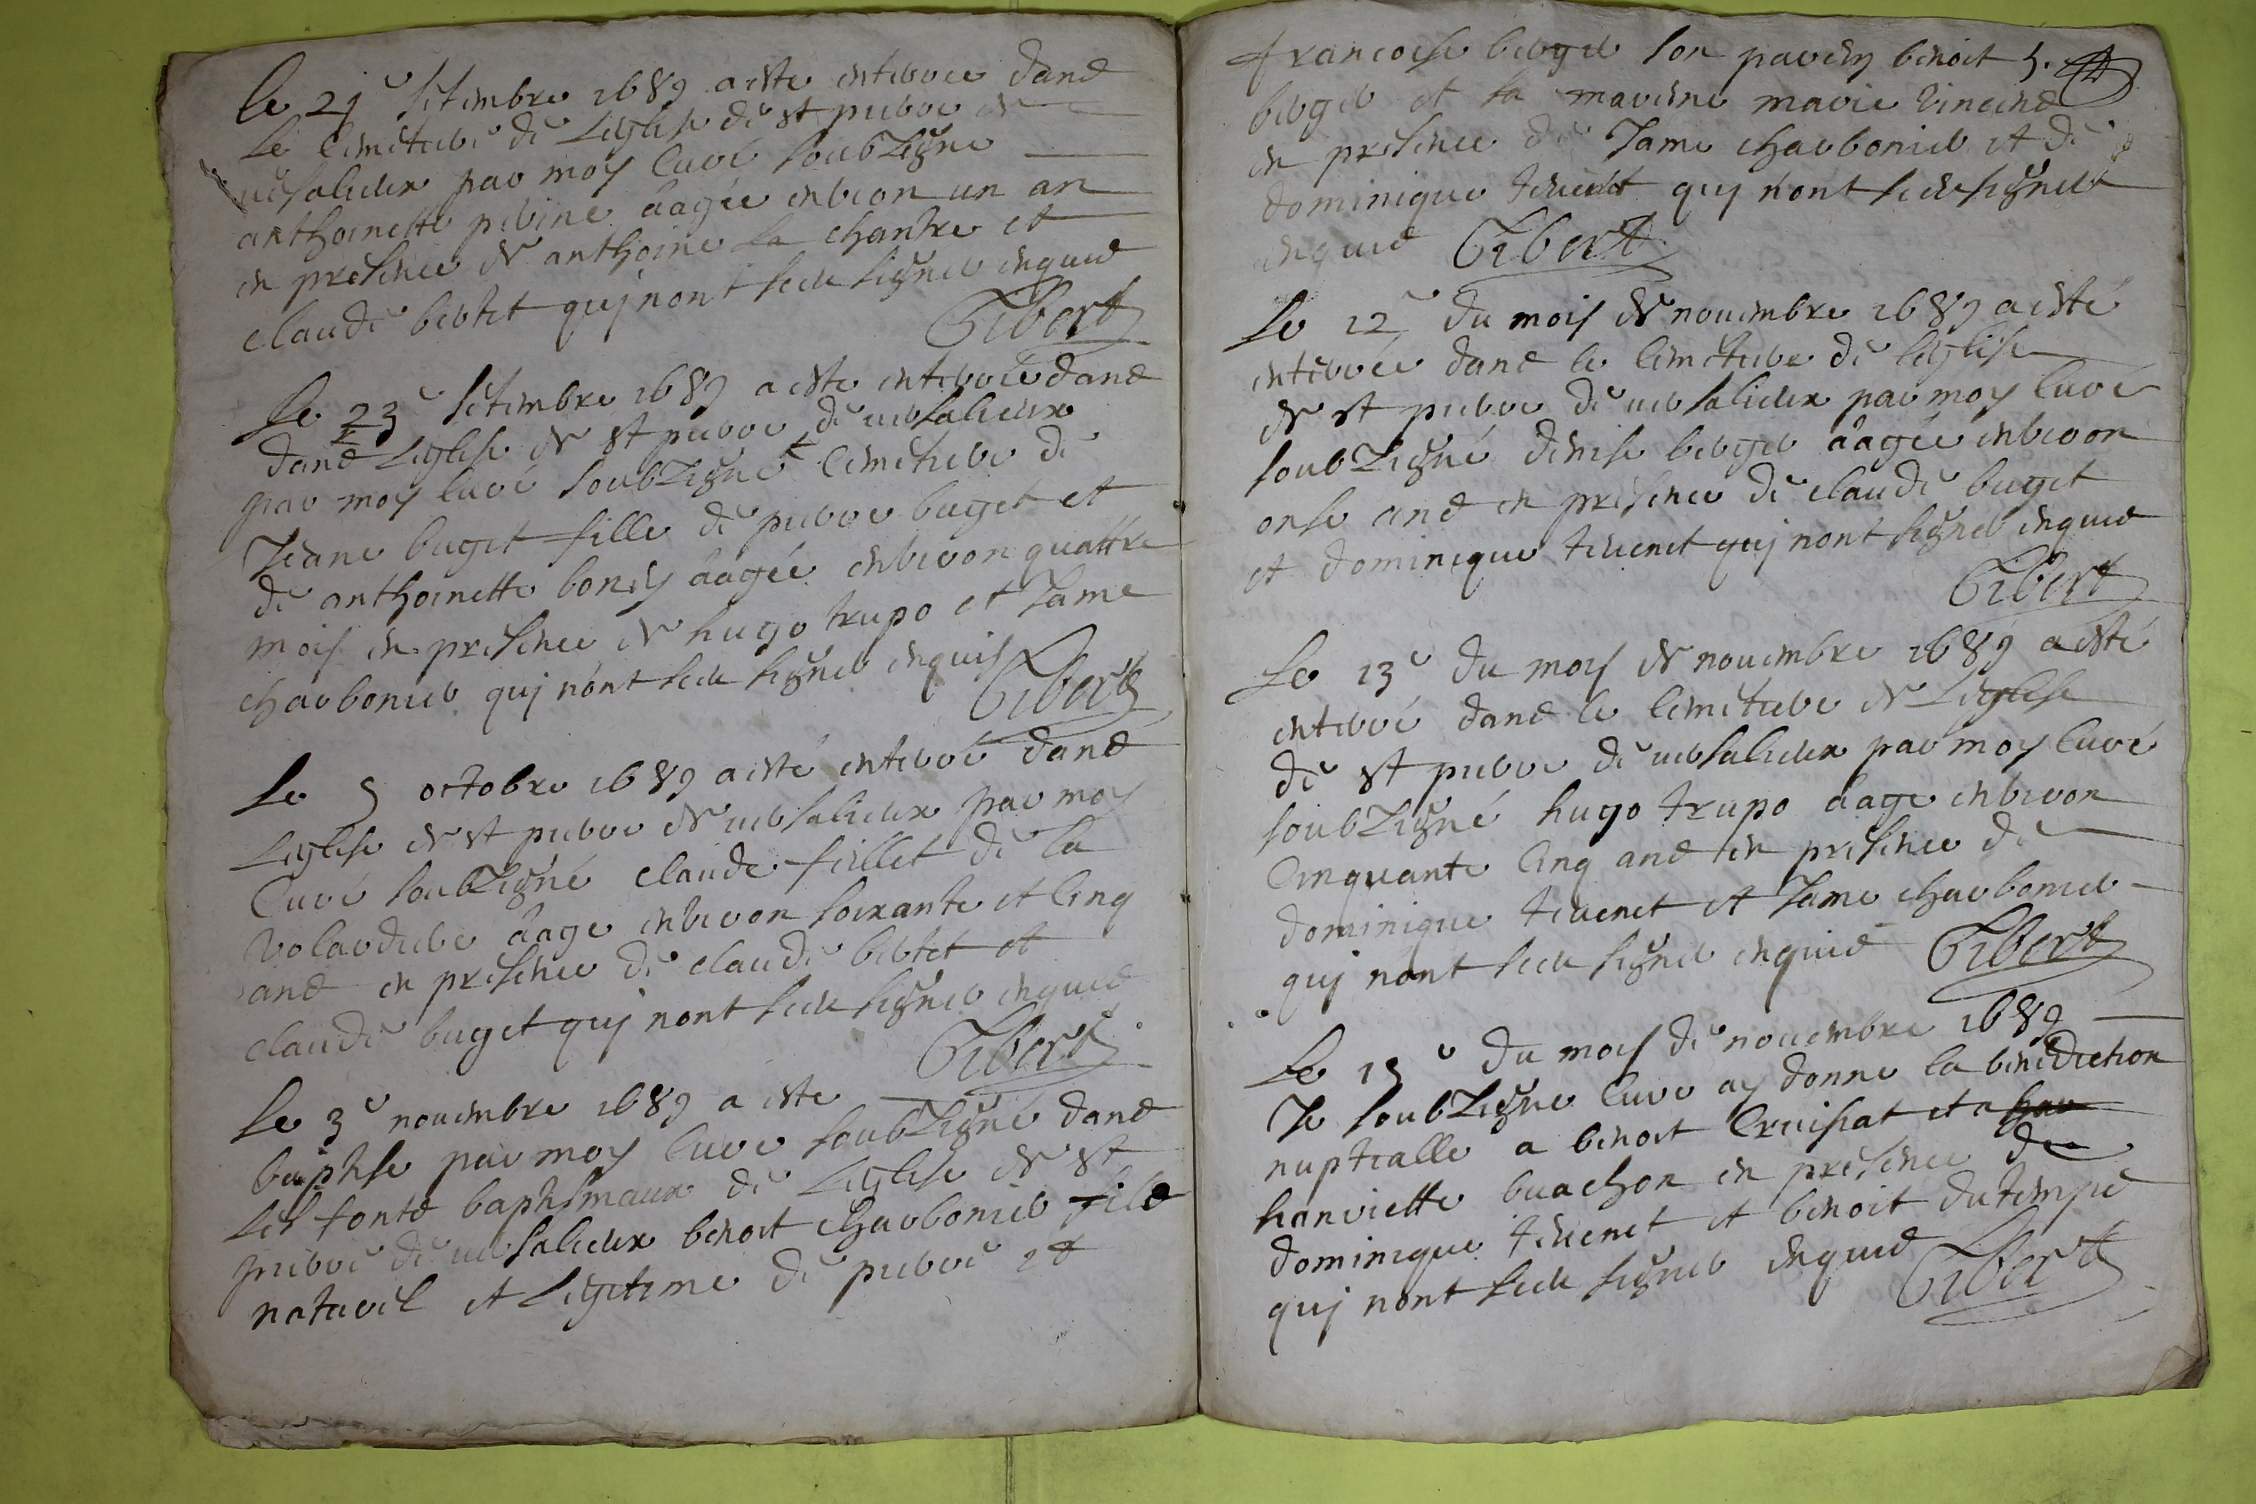 Le 21e setembre 1689 a este enterree dans
le cimetiere de leglise de st pierre de
versalieux par moy curé soubsigne
anthoinette perine aagée environ un an
en presence de anthoine la chantre et
claude bertet quj nont sceu signer enquis
Gibert
Le 23e setembre 1689 a este enterrée dans
dans leglise de st pierre de versalieux
par moy curé soubsigné cimetiere de
Jeane buget fille de pierre buget et
de anthoinette aagée environ quattre
mois en presence de hugo trupo et Jame
charbonier quj nont sceu signer enquis
Gibert
Le 5 octobre 1689 a esté enterré dans
leglise de st pierre de versalieux par moy
curé soubsigné claude fillet de la
volardiere aage environ soixante et cinq
ans en presence de claude bertet et
claude buget quj nont sceu signer enquis
Gibert
Le 3e novembre 1689 a este
baptise par moy curé soubsigné dans
les fonts baptismaux de leglise de st
pierre de versalieux benoit charbonier fils
naturel et legitime de pierre et
francoise berger son parein benoit 5.
berger et sa mareine marie
en presence de Jame charbonier et de
dominique tevenet quj nont sceu signer
enquis Gibert
Le 12e du mois de novembre 1689 a esté
enterrée dans le cimetiere de leglise
de st pierre de versalieux par moy curé
soubsigné denise berger aagée environ
onse ans en presence de claude buget
et dominique tevenet quj nont signer enquis
Gibert
Le 13e du moys de novembre 1689 a esté
enterré dans le cimetiere de leglise
de st pierre de versalieux par moy curé
soubsigné hugo trupo aagé environ
cinquante cinq ans en presence de
dominique tevenet et Jame charbonier
quj nont sceu signer enquis Gibert
Le 15e du moys de novembre 1689
Je soubsigne curé ay donne la benediction
nuptialle a benoit Cruisiat et a
hanriette buachon en presence de
dominique tevenet et benoit dutemps
quj nont sceu signer enquis Gibert